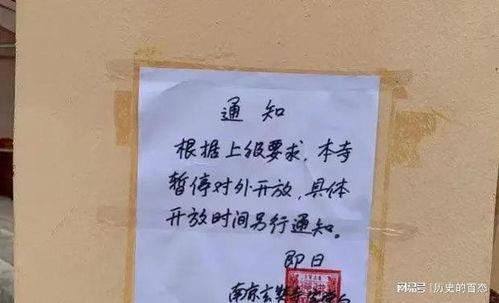 通知
根据上级要求，本寺
暂停对外开放，具体
开放时间另行通知。
即日
南京玄奘寺
网易号 | 历史的百态